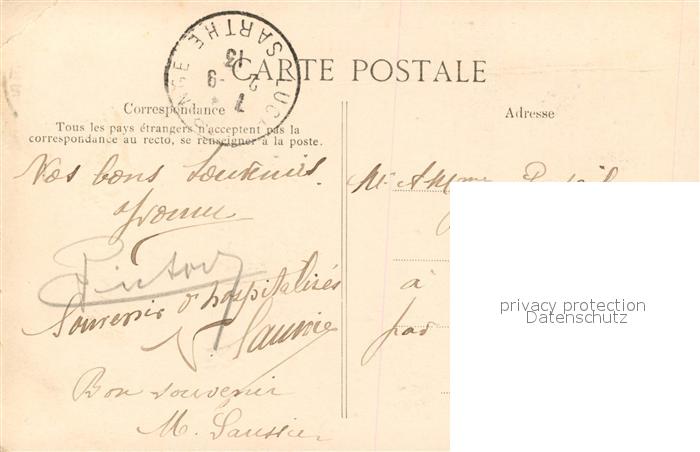 LUCÉ
SARTHE
7 - 9
13
CARTE POSTALE
Correspondance
Tous les pays étrangers n'acceptent pas la
correspondance au recto, se renseigner à la poste.
Nos bons souvenirs.
Yvonne
Souvenir d'hospitalisés
Bon souvenir
M. Saussier
Adresse
Mr & Mme
à
par
privacy protection
Datenschutz